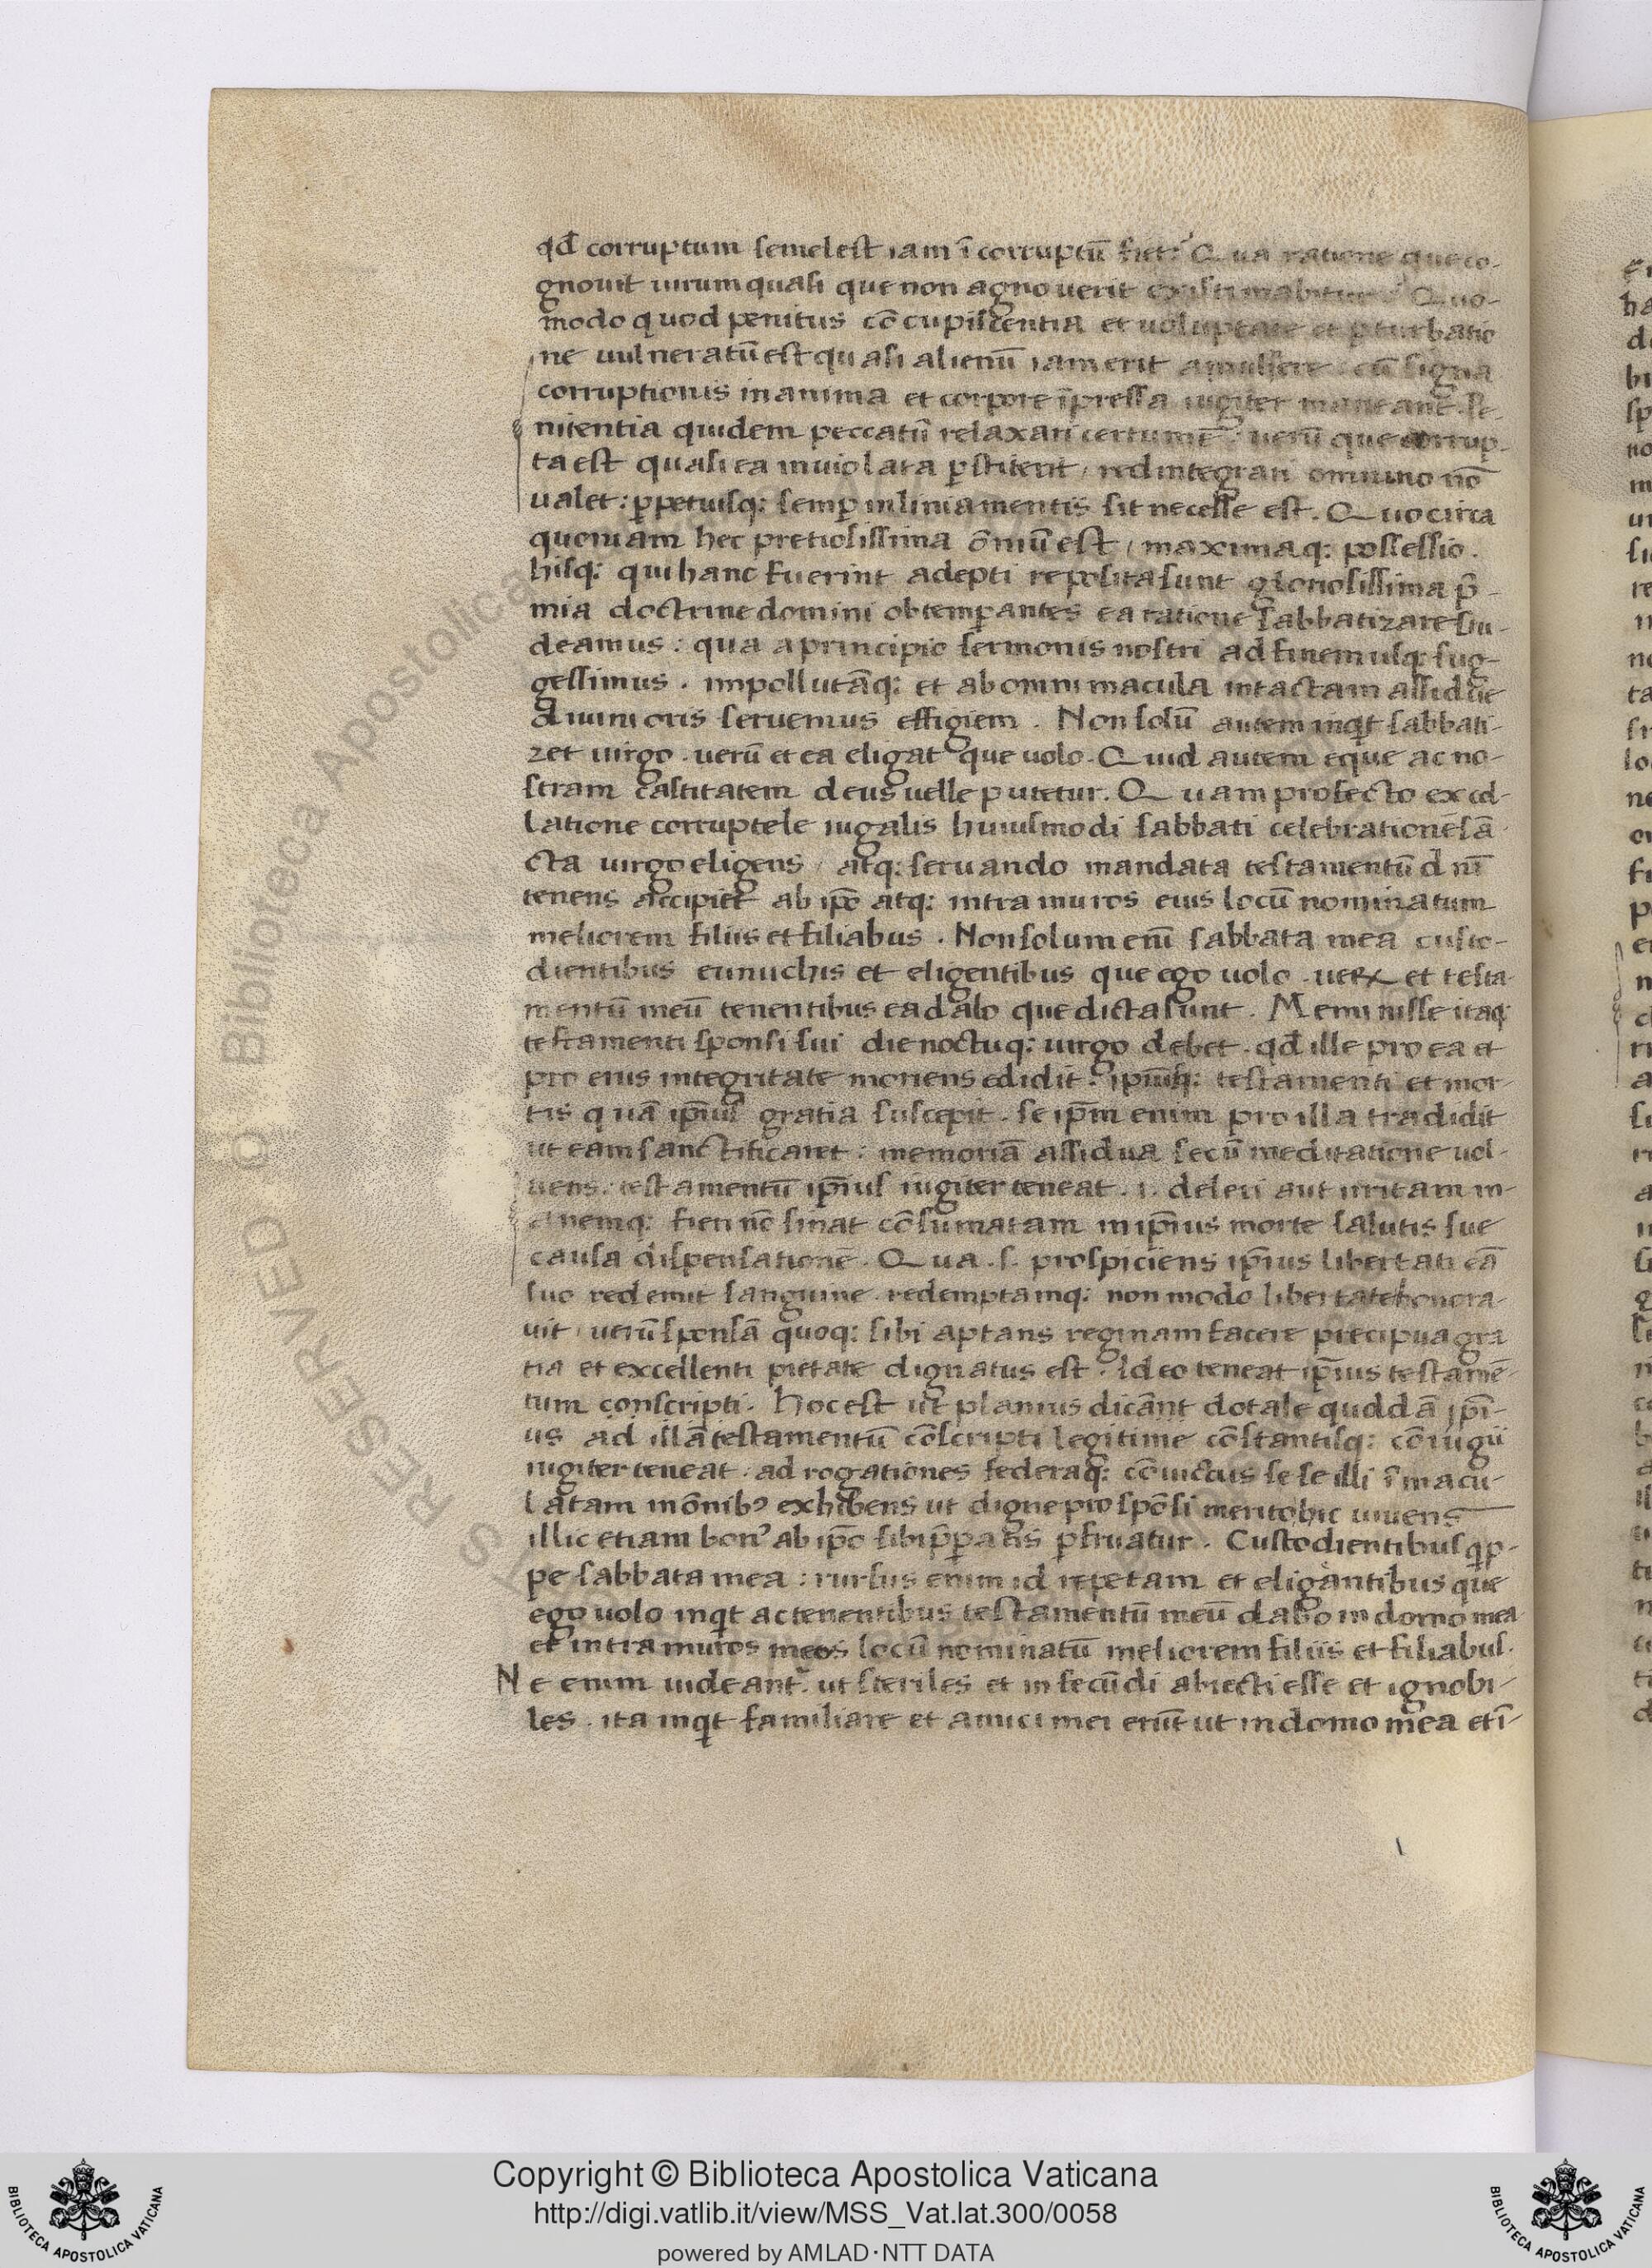 qđ corruptum semel est iam ī corruptū fiet? Qua ratione que co-
gnouit uirum quasi que non agnouerit existimabitur? Quo-
modo quod penitus cōcupiscentia et uoluptate et pturbatio
ne uulneratū est quasi alienū iam erit a muliere: cū signa
corruptionis in anima et corpore īpressa iugiter maneant. Pe-
nitentia quidem peccatū relaxari certum ē: uerū que corrup-
ta est quasi ea inuiolata pstiterit, redintegrari omnino nō
ualet: ppetuisq: semp in liniamentis sit necesse est. Quocirca
quoniam hec pretiosissima ōmiū est, maximaq: possessio.
hisq: qui hanc fuerint adepti reposita sunt gloriosissima p̄-
mia doctrine domini obtempantes ea ratione sabbatizare stu-
deamus: qua a principio sermonis nostri ad finem usq: sug-
gessimus. impollutāq: et ab omni macula intactam assidue
diuini oris seruemus effigiem. Non solū autem inqt sabbati-
zet uirgo. uerū et ea eligat que uolo. Quid autem eque ac no-
stram castitatem deus uelle putetur. Quam profecto ex cd-
latione corruptele iugalis huiusmodi sabbati celebrationē sā-
cta uirgo eligens, atq: seruando mandata testamentū dn̄i
tenens accipiet ab ipō atq: intra muros eius locū nominatum
meliorem filiis et filiabus. Non solum enī sabbata mea custo-
dientibus eunuchis et eligentibus que ego uolo. ueꝝ et testa-
mentū meū tenentibus ea dabo que dicta sunt. Meminisse itaq:
testamenti sponsi sui die noctuq: uirgo debet. qđ ille pro ea et
pro eius integritate moriens edidit. ipīusq: testamenti et mor-
tis quā ipīus gratia suscepit. se ipm̄ enim pro illa tradidit
ut eam sanctificaret: memoriā assidua secū meditatione uol-
uens. testamentū ipīus iugiter teneat. i. deleri aut irritam in-
anemq: fieri nō sinat cōsumatam in ipīus morte salutis sue
causa dispensationē. Qua. s. prospiciens ipīus libertati eā
suo redemit sanguine. redemptamq: non modo libertate honora-
uit, uerū sponsā quoq: sibi aptans reginam facere precipua gra
tia et excellenti pietate dignatus est. Ideo teneat ipīus testamē-
tum conscripti. Hoc est ut planius dicānt dotale quddā ipī-
us ad illā testamentū cōscripti legitime cōstantisq: cōiugii
iugiter teneat. ad rogationes federaq: cōiūctus sese illi īmacu-
latam in ōnibꝰ exhibens ut digne pro spōsi merito hic uiuens
illic etiam bonꝰ ab ipō sibi p̄paratis pfruatur. Custodientibus qp-
pe sabbata mea: rursus enim id repetam et eligantibus que
ego uolo inqt ac tenentibus testamentū meū dabo in domo mea
et intra muros meos locū nominatū meliorem filiis et filiabus.
Ne enim uideant̄ ut steriles et infecūdi abiecti esse et ignobi-
les. ita inqt familiare et amici mei erūt ut in domo mea et ī-
Copyright © Biblioteca Apostolica Vaticana
http://digi.vatlib.it/view/MSS_Vat.lat.300/0058
powered by AMLAD·NTT DATA
BIBLIOTECA APOSTOLICA VATICANA
BIBLIOTECA APOSTOLICA VATICANA